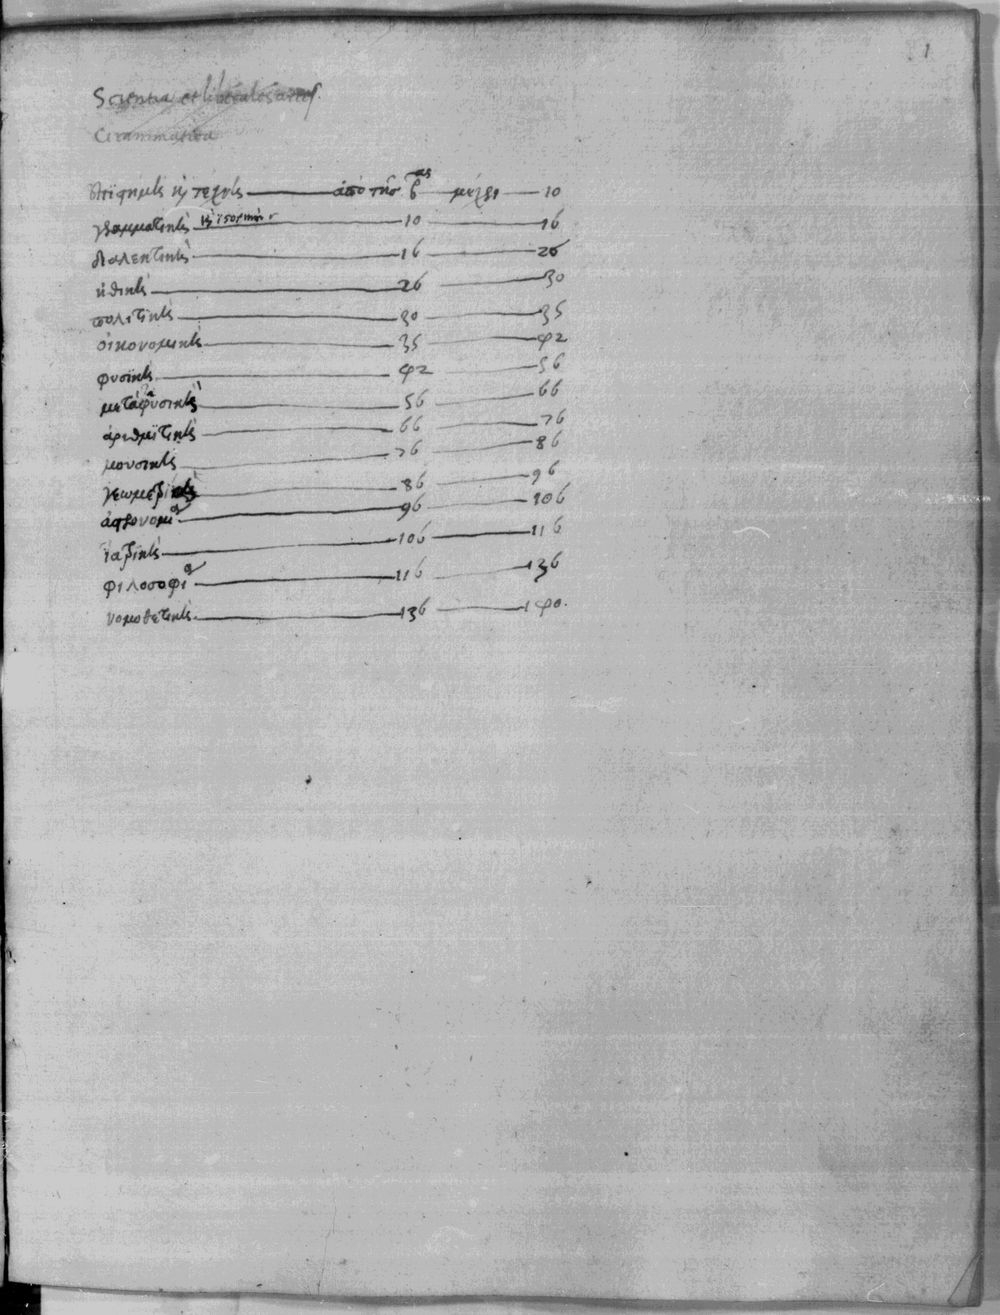 1
Scientia et liberales artes
Grammatica
ἐπιστήμης κ τέχνης ἀπὸ τῆς βας μέχρι 10
γραμματικῆς κ ἱστορικῆς 10 16
διαλεκτικῆς 16 26
ἠθικῆς 26 30
πολιτικῆς 30 35
οἰκονομικῆς 35 42
φυσικῆς 42 56
μεταφυσικῆς 56 66
ἀριθμιτικῆς 66 76
μουσικῆς 76 86
γεωμετρικῆς 86 96
ἀστρονομία 96 106
ἰατρικῆς 106 116
φιλοσοφία 116 136
νομοθετικῆς 136 140.